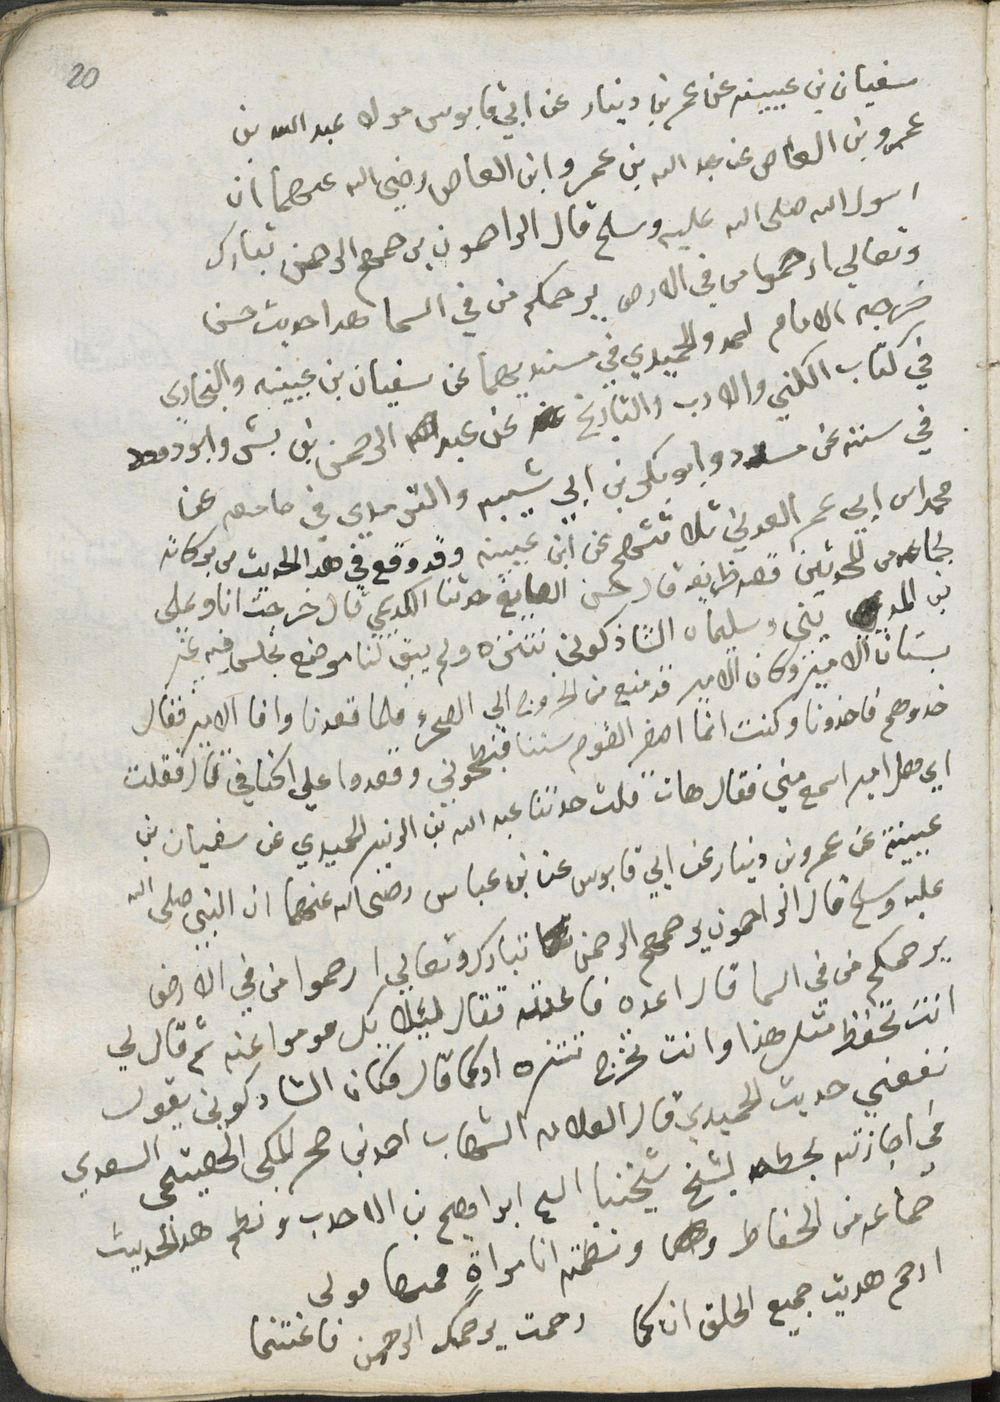 20
سفيان بن عيينه عن عمر بن دينار عن ابي قابوس مولا عبد الله بن
عمرو بن العاص عن عبد الله بن عمرو ابن العاص رضي الله عنهما ان
رسول الله صلى الله عليه وسلم قال الراحمون يرحمهم الرحمن تبارك
وتعالي ارحموا من في الارض يرحمكم من في السما هدا حديث حسن
خرجه الامام احمد والحميدي في مسنديهما عن سفيان بن عيينه والبخاري
في كتاب الكني والادب والتاريخ عن عبد الرحمن بن بشر وابو داود
في سننه عن مسدد وابو بكر بن ابي شيبه والترمدي في جامعه عن
محمد ابن ابي عمر العدني ثلاثتهم عن ابن عيينه وقد وقع في هدا الحديث من بركاته
لجماعه من المحدثين قصه ظريفه قال حسن الصايغ حدثنا الكديمي قال خرجت انا وعلي
بن المديني وسليمان الشاذكوني نتنزه ولم يبق لنا موضع نجلس فيه غير
بستان الامير وكان الامير قد منع من الخروج الي الصحرء فلما قعدنا وافا الامير فقال
خدوهم فاخدونا وكنت انا اصغر القوم سننا فبطحوني وقعدوا علي اكتافي قال فقلت
ايها الامير اسمع مني فقال هات قلت حدثنا عبد الله بن الزبير الحميدي عن سفيان بن
عيينة عن عمرو بن دينار عن ابي قابوس عن بن عباس رضي الله عنهما ان النبي صلى الله
عليه وسلم قال الراحمون يرحمهم الرحمن تبارك وتعالي ارحموا من في الارض
يرحمكم من في السما قال اعده فاعدته فقال قوموا عنه ثم قال لي
انت تحفظ مثل هذا وانت تخرج تتنزه او كما قال فكان الشادكوني يقول
نفعني حديث الحميدي قال العلامه الشهاب احمد بن حجر المكي الهيتمي السعدي
في اجازته بخطه لشيخ شيخنا ابراهيم بن الاحدب ونظم هذا الحديث
جماعه من الحفاظ ونظمته انا مراة
ارحم هديت جميع الخلق انك ما رحمت يرحمك الرحمن فاغتنما